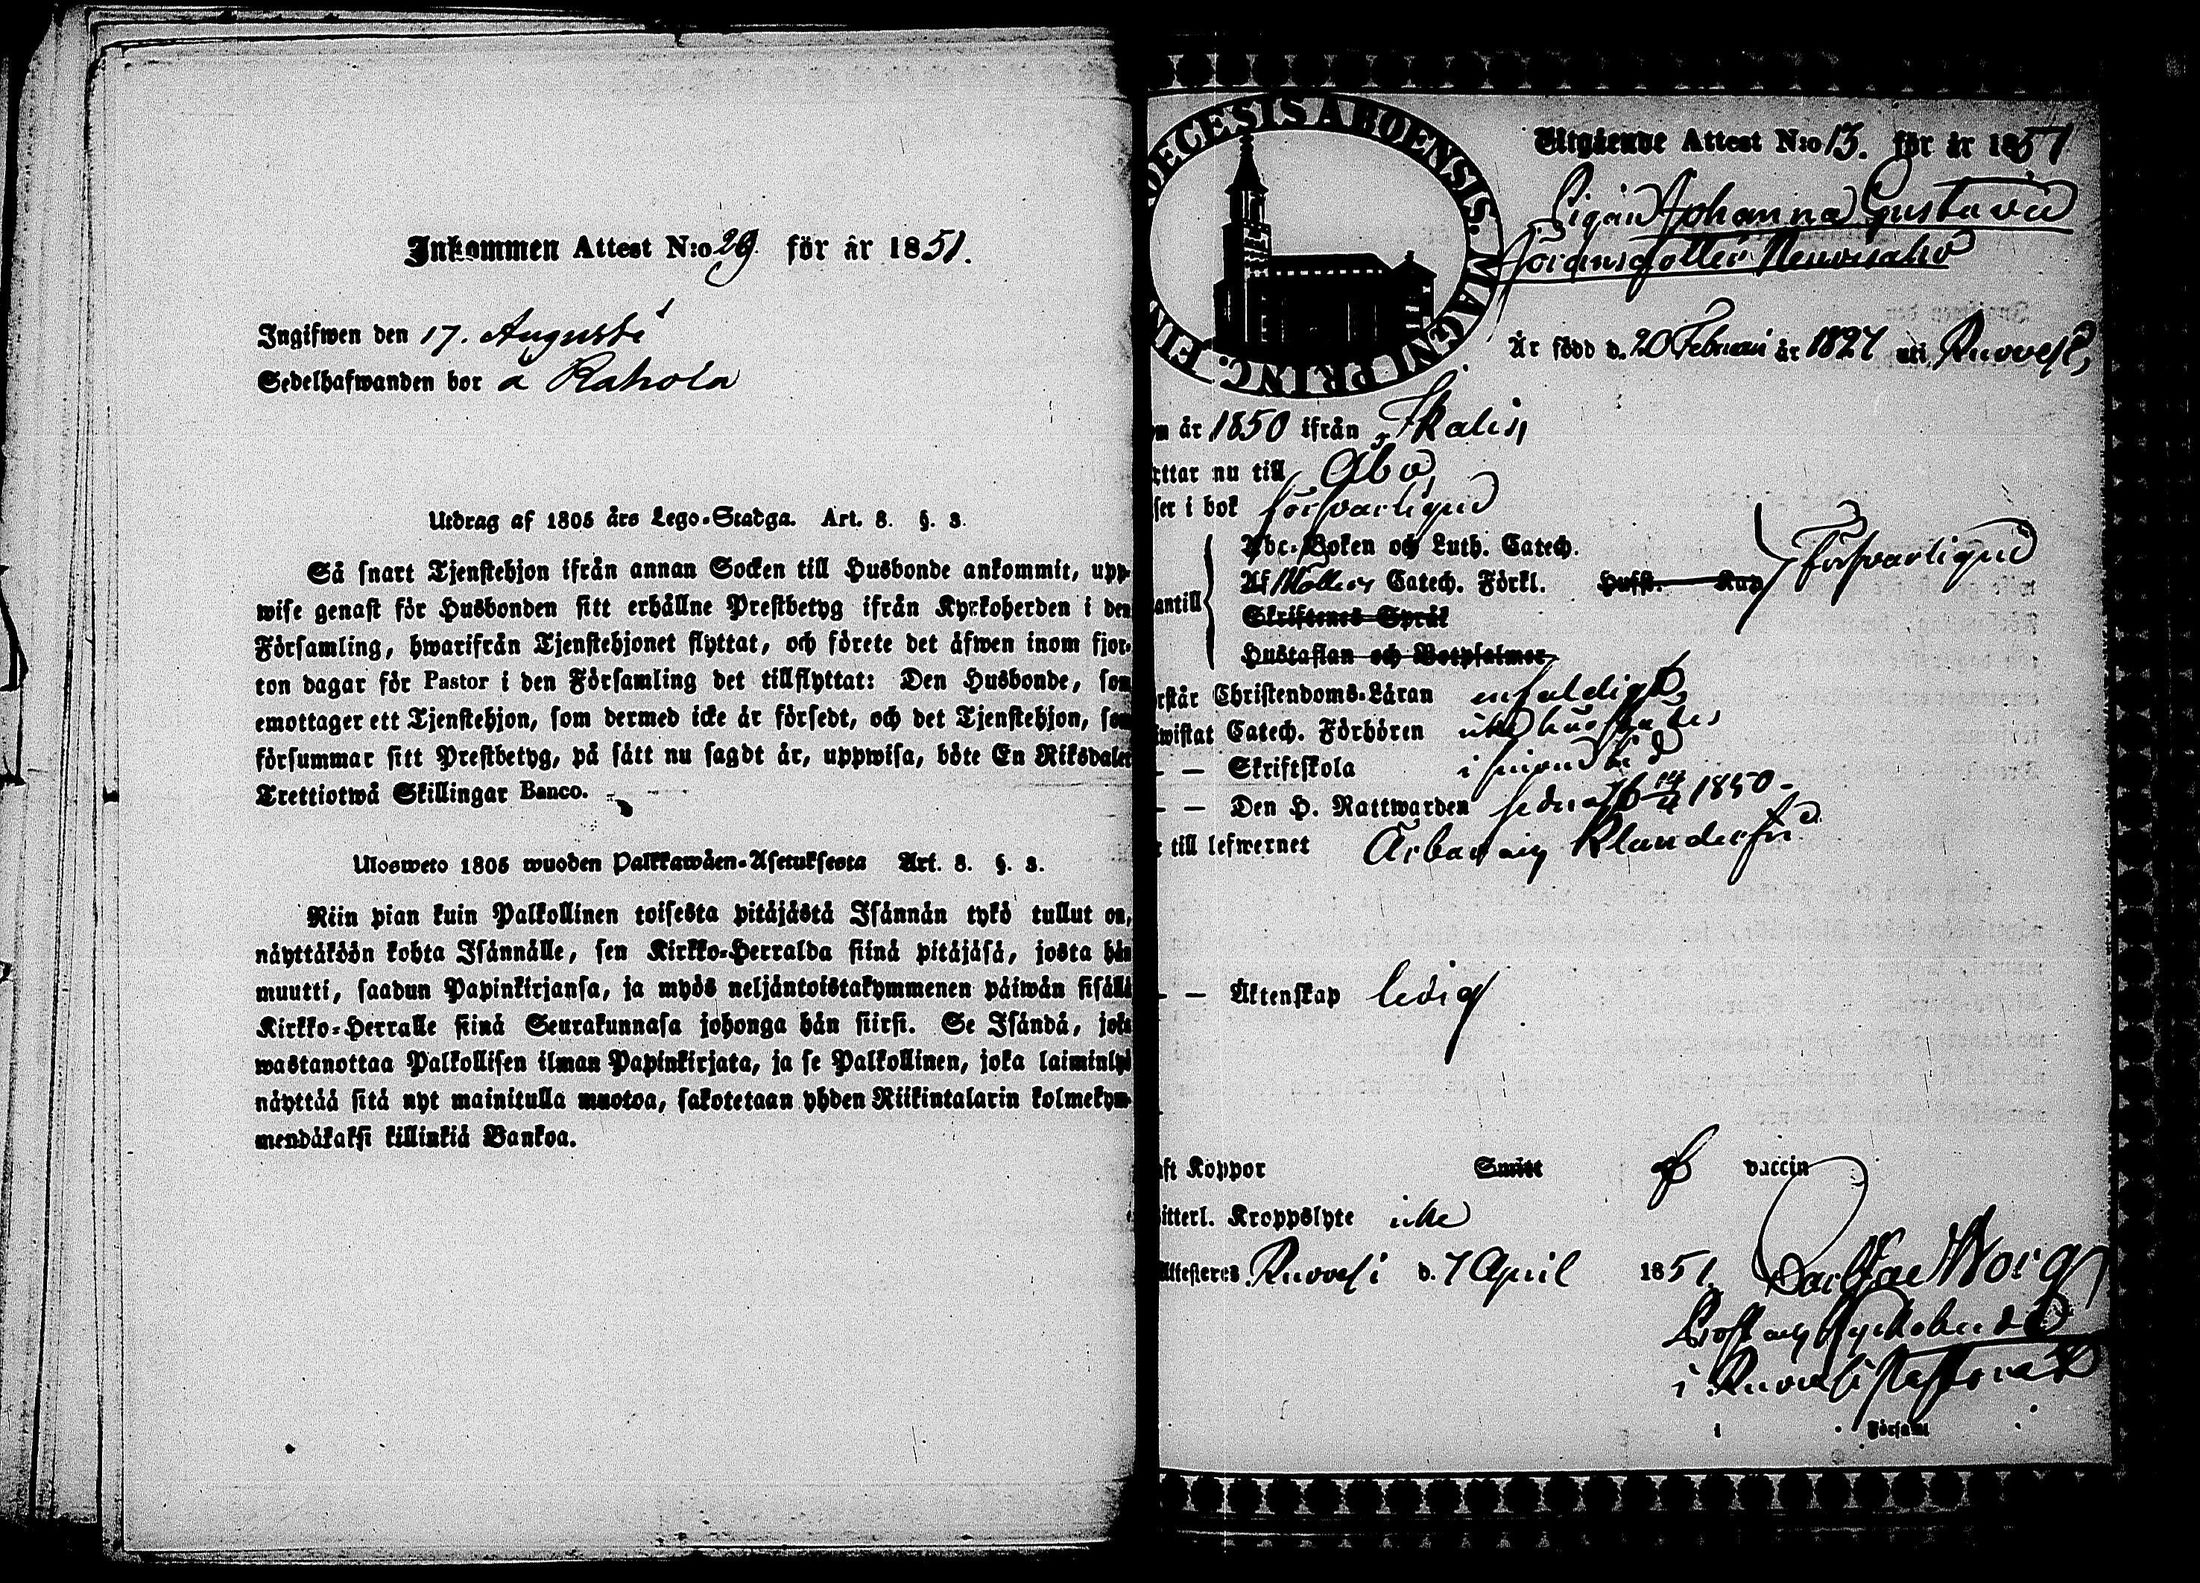 Inkommen Attest N:o 29. för år 1851.
Ingifwen den 17. Augusti
Sedelhafwanden bor å Rahola
Utdrag af 1805 års Lego-Stadga. Art. 8. §. 3.
Så snart Tjenstehjon ifrån annan Socken till Husbonde ankommit, upp-
wise genast för Husbonden sitt erhållne Prestbetyg ifrån Kyrkoherden i den
Församling, hwarifrån Tjenstehjonet flyttat, och förete det äfwen inom fjor-
ton dagar för Pastor i den Församling det tillflyttat: Den Husbonde, som
emottager ett Tjenstehjon, som dermed icke är försedt, och det Tjenstehjon, som
försummar sitt Prestbetyg, på sätt nu sagdt är, uppwisa, böte En Riksdaler
Trettiotwå Skillingar Banco.
Ulosweto 1805 wuoden Palkkawäen-Asetuksesta Art. 8. §. 3.
Niin pian kuin Palkollinen toisesta pitäjästä Isännän tykö tullut on,
näyttäköön kohta Isännälle, sen Kirkko-Herralda siinä pitäjäsä, josta hän
muutti, saadun Papinkirjansa, ja myös neljäntoistakymmenen päiwän sisällä
Kirkko-Herralle siinä Seurakunnasa johonga hän siirsi. Se Isändä, joka
wastanottaa Palkollisen ilman Papinkirjata, ja se Palkollinen, joka laiminlyö
näyttää sitä nyt mainitulla muotoa, sakotetaan yhden Riikintalarin kolmekym-
mendäkaksi killinkiä Bankoa.
DECESIS ABOENSIS. MAGNI PRINC. FIN
Utgående Attest N:o 13. för år 1851
Pigan Johanna Gustava
Göransdotter
Är född d. 20 Februari år 1827 uti Ruovesi,
m år 1850 ifrån Ikalis,
ttar nu till Åbo
ser i bok försvarligen
Abc-Boken och Luth. Catech.
antill Af Möllers Catech. Förkl. Hufst. försvarligen
Skriftenes Språk
Hustaflan och Botpsalmer
rstår Christendoms-Läran enfaldigt,
wistat Catech. Förhören icke
— — Skriftskola i
— — Den H. Nattwarden sednast 14/4 1850.
till lefwernet Ärbar och klanderfri
— — Äktenskap ledig
ft Koppor Smitt af vaccin
itterl. Kroppslyte icke
Attesteres Ruovesi d. 7 April 1851.
Prost och Kyrkoherde
i Ruovesi
i Församl